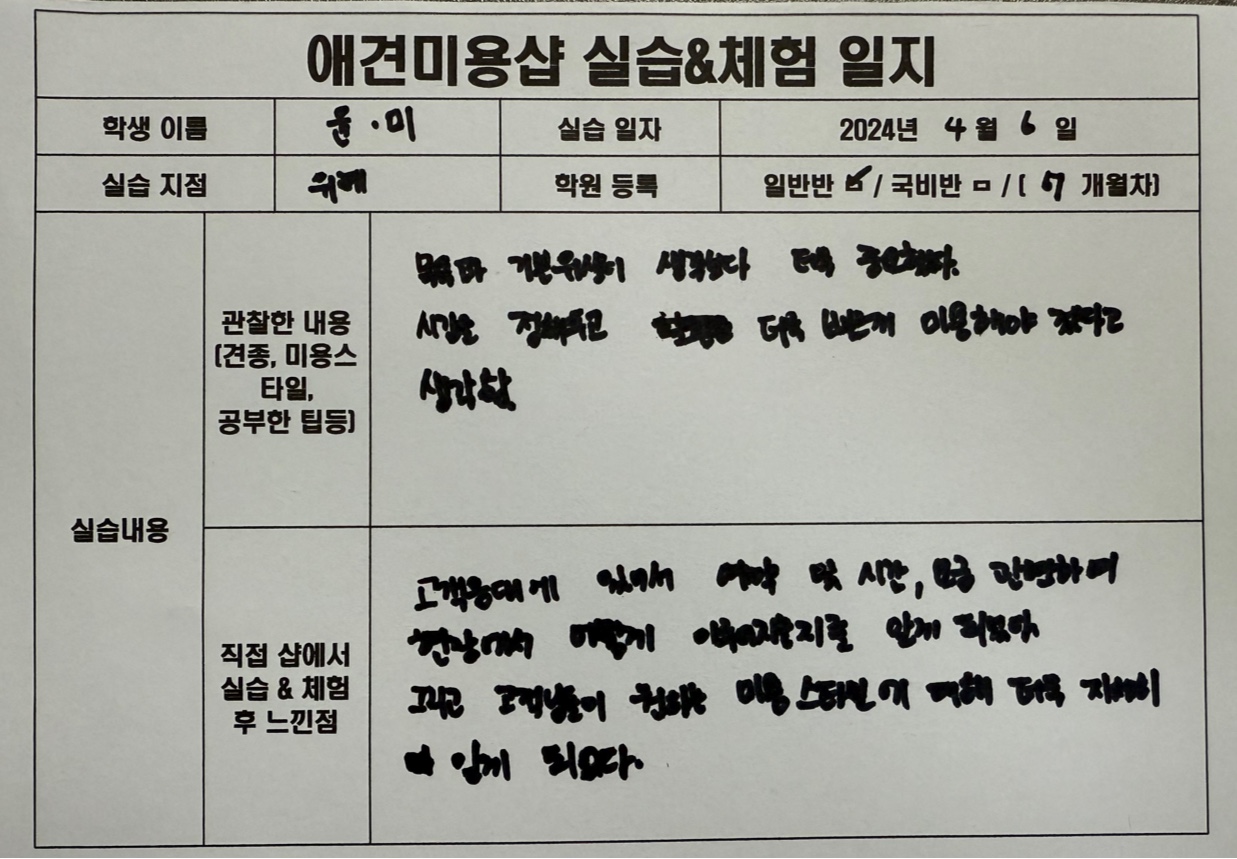 애견미용샵 실습&체험 일지
학생 이름 윤·미 실습 일자 2024년 4월 6일
실습 지점 위례 학원 등록 일반반 ☑ / 국비반 □ / ( 7 개월차)
실습내용
관찰한 내용
(견종, 미용스
타일,
공부한 팁등)
목욕과 생각보다 더욱 중요했다.
시간을 더욱 빠르게 미용해야 겠다고
생각함.
직접 샵에서
실습 & 체험
후 느낀점
고객응대에 있어서 예약 및 시간, 요금 관련하여
현장에서 어떻게 이루어지는지를 알게 되었다.
그리고 고객님들이 원하는 미용 스타일에 대해 더욱 자세히
알게 되었다.